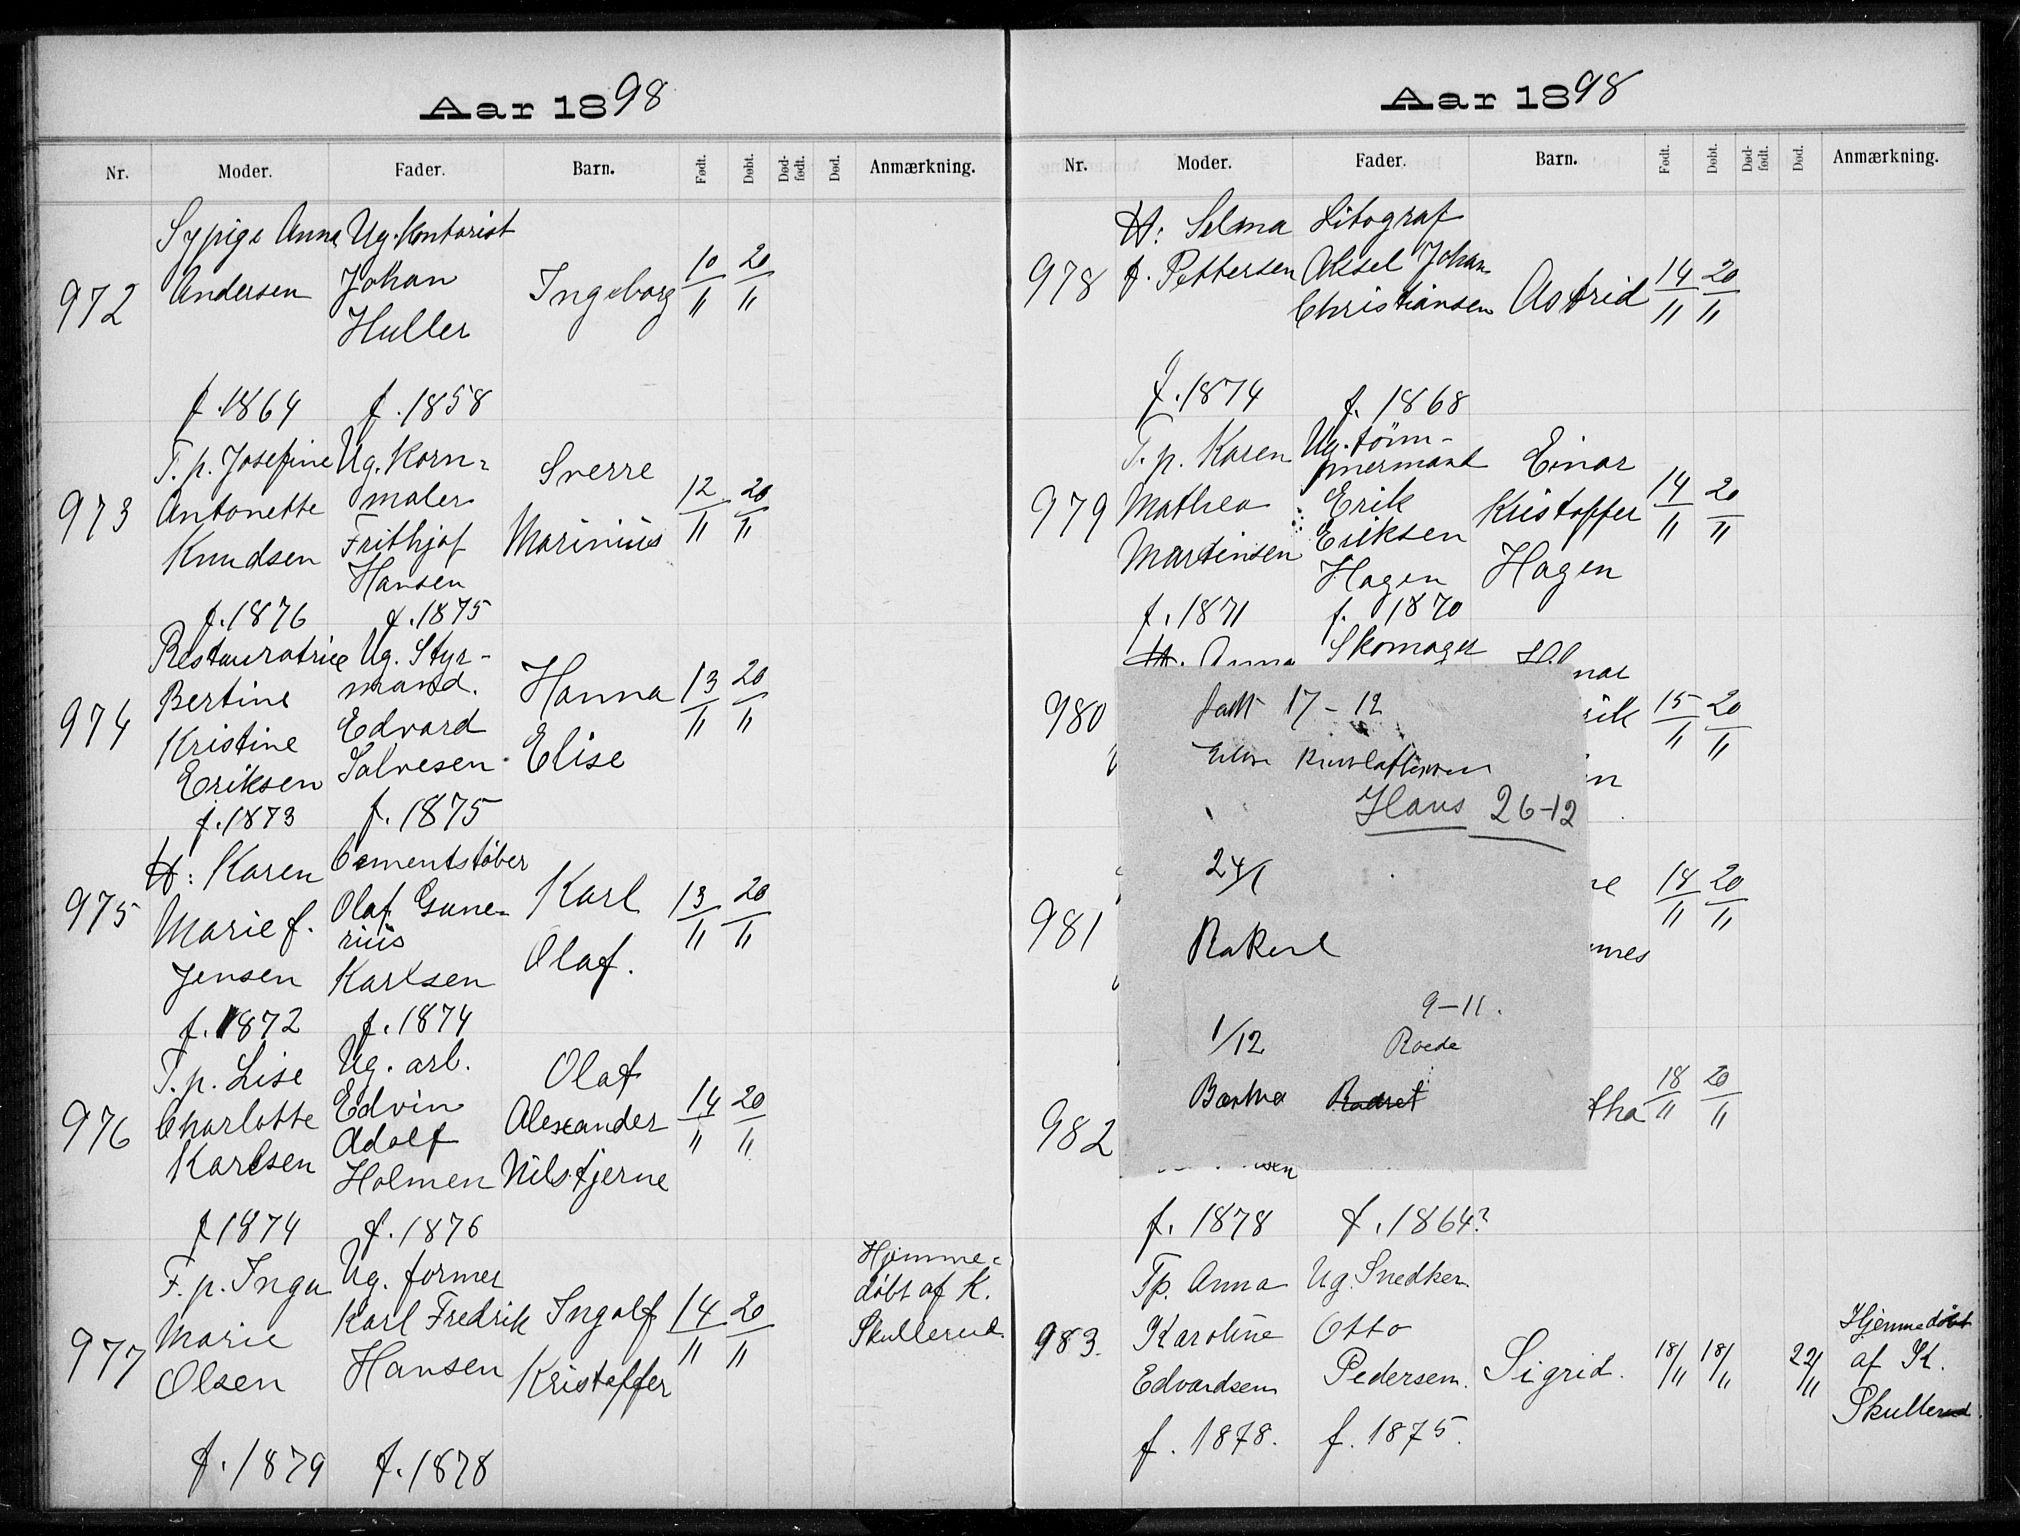 Aar 1898
Nr. Moder. Fader. Barn. Født. Døbt. Død-født. Død. Anmærkning.
972
Sypige Anna
Andersen
f. 1864
Ug. Kontorist
Johan
Huller
f. 1858
Ingeborg
10/11 20/11
973
T. p. Josefine
Antonette
Knudsen
f. 1876
Ug. Korn-
maler
Frithjof
Hansen
f. 1875
Sverre
Marinius
12/11 20/11
974
Restauratrice
Bertine
Kristine
Eriksen
f. 1873
Ug. Styr-
mand.
Edvard
Salvesen
f. 1875
Hanna
Elise
13/11 20/11
975
H: Karen
Marie f.
Jensen
f. 1872
Cementstøber
Olaf Gune-
rius
Karlsen
f. 1874
Karl
Olaf.
13/11 20/11
976
T. p. Lise
Charlotte
Karlsen
f 1874
Ug. arb.
Edvin
Adolf
Holmen
f. 1876
Olaf
Alexander
Nilstjerne
14/11 20/11
977
F. p. Inga
Marie
Olsen
f. 1879
Ug. former
Karl Fredrik
Hansen
f. 1878
Ingolf
Kristoffer
14/11 20/11
Hjemme-
døbt af K.
Skullerud.
Aar 1898
Nr. Moder. Fader. Barn. Født. Døbt. Død-født. Død. Anmærkning.
978
H: Selma
f. Pettersen
f. 1874
Litograf
Aksel Johan
Christiansen
f. 1868
Astrid
14/11 20/11
979
T. p. Karen
Mathea
Martinsen
f. 1871
Ug. tøm-
mermand
Erik
Eriksen
Hagen
f. 1870
Einar
Kristoffer
Hagen
14/11 20/11
980
H. Anna
Skomager
nar
rik
n
15/11 20/11
født 17-12
Hans 26-12
24/1
1/12
9-11.
Roede
981
ne
nnes
18/11 20/11
982
sen
f. 1878
f. 1864?
tha
18/11 20/11
983.
Tp. Anna
Karoline
Edvardsen
f. 1878.
Ug. Snedker.
Otto
Pedersen.
f. 1875.
Sigrid.
18/11 18/11 22/11
Hjemmedøbt
af K.
Skullerud.